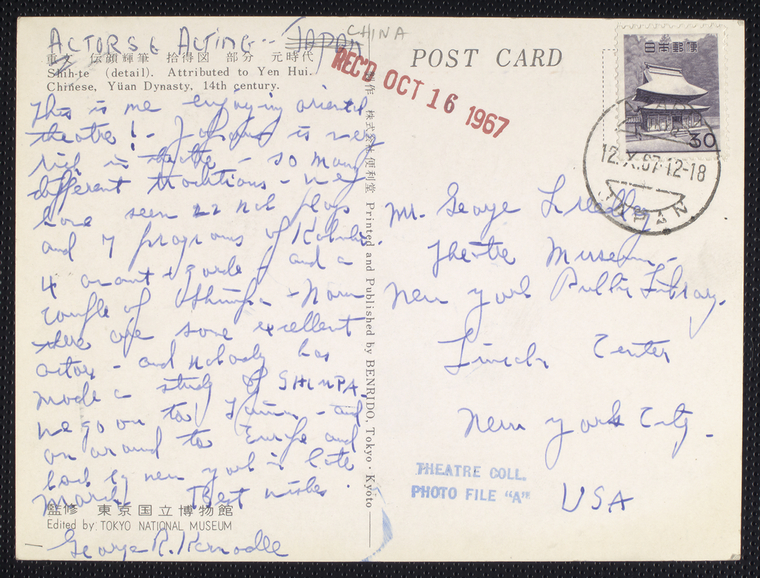 ACTORS & ACTING -- JAPAN
CHINA
重文 伝顔輝筆 拾得図 部分 元時代
Shih-te (detail). Attributed to Yen Hui.
Chinese, Yüan Dynasty, 14th century.
This is me enjoying oriental
theatre! - Japan is very
rich in theatre - so many
different traditions - we
have seen 22 Noh plays
and 7 programs of Kabuki.
4 avant-garde, and a
couple of Shimpa -
there are some excellent
actors - and nobody has
made a study of SHIMPA.
We go on to - and
on around to Europe and
back to New York in late
March. Best wishes.
監修 東京国立博物館
Edited by TOKYO NATIONAL MUSEUM
- George R. Kernodle
製作 株式会社 便利堂 Printed and Published by BENRIDO, Tokyo · Kyoto
POST CARD
REC'D OCT 16 1967
日本郵便
30
12.X.67.12-18
JAPAN
Mr. George Freedley
Theatre Museum -
New York Public Library.
Lincoln Center
New York City.
USA
THEATRE COLL.
PHOTO FILE "A"